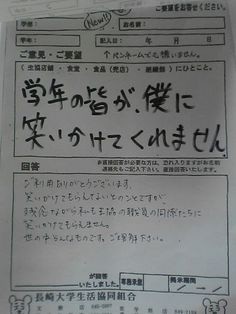 ご要望をお寄せください。
New!!
学部: お名前:
学年: 記入日: 年 月 日
ご意見・ご要望 ↑ペンネームでも構いません。
(生協店舗・食堂・食品(売店)・組織部)にひとこと。
学年の皆が、僕に
笑いかけてくれません
回答
ご利用ありがとうございます。
笑いかけてもらえしないとのことですが、
残念ながら私も生協の職員の同僚たちに
笑いかけてもらえません。
世の中そんなものです。ご理解下さい。
が回答
いたしました。
掲示期間
長崎大学生活協同組合